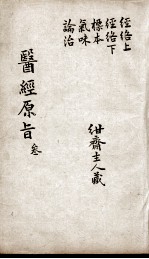 經絡上
經絡下
標本
氣味
論治
醫經原旨 叁
紺齋主人藏